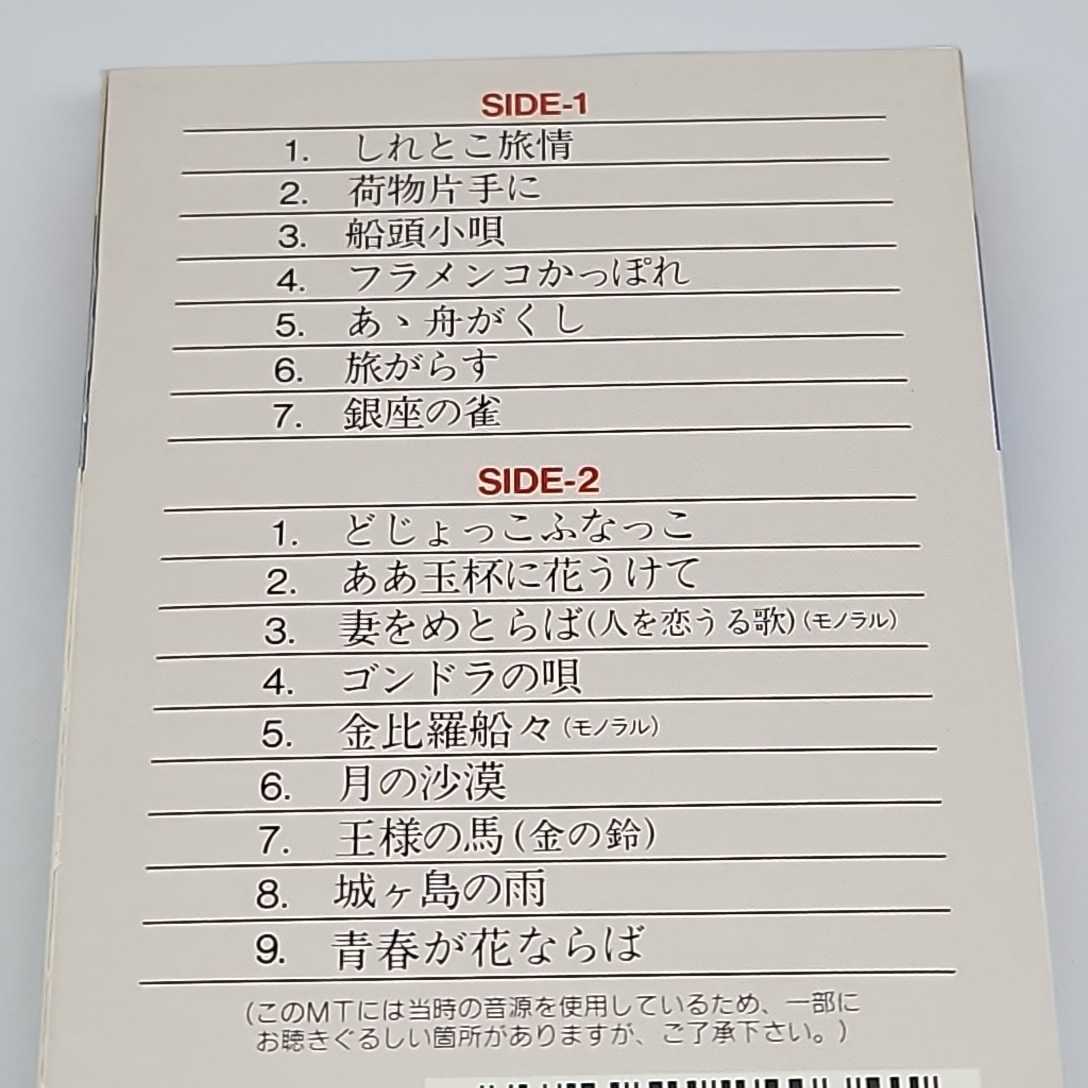 SIDE-1
1. しれとこ旅情
2. 荷物片手に
3. 船頭小唄
4. フラメンコかっぽれ
5. あゝ舟がくし
6. 旅がらす
7. 銀座の雀
SIDE-2
1. どじょっこふなっこ
2. ああ玉杯に花うけて
3. 妻をめとらば(人を恋うる歌)(モノラル)
4. ゴンドラの唄
5. 金比羅船々(モノラル)
6. 月の沙漠
7. 王様の馬(金の鈴)
8. 城ヶ島の雨
9. 青春が花ならば
(このMTには当時の音源を使用しているため、一部に
お聴きぐるしい箇所がありますが、ご了承下さい。)